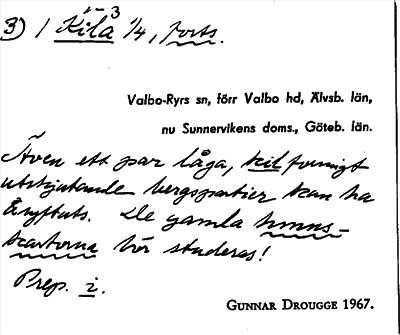 1–3
3) / Kila 1/4, forts.
Valbo-Ryrs sn, förr Valbo hd, Älvsb. län,
nu Sunnervikens doms., Göteb. län.
Även ett par låga, kilformigt
utskjutande bergspartier kan ha
åsyftats. De gamla hmns-
kartorna bör studeras!
Prep. i.
GUNNAR DROUGGE 1967.